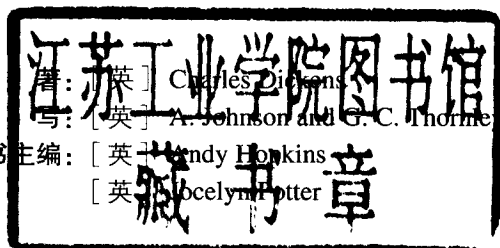 江苏工业学院图书馆
藏书章
著：［英］Charles Dickens
写：［英］A. Johnson and G. C. Thornley
书主编：［英］Andy Hopkins
［英］Jocelyn Potter